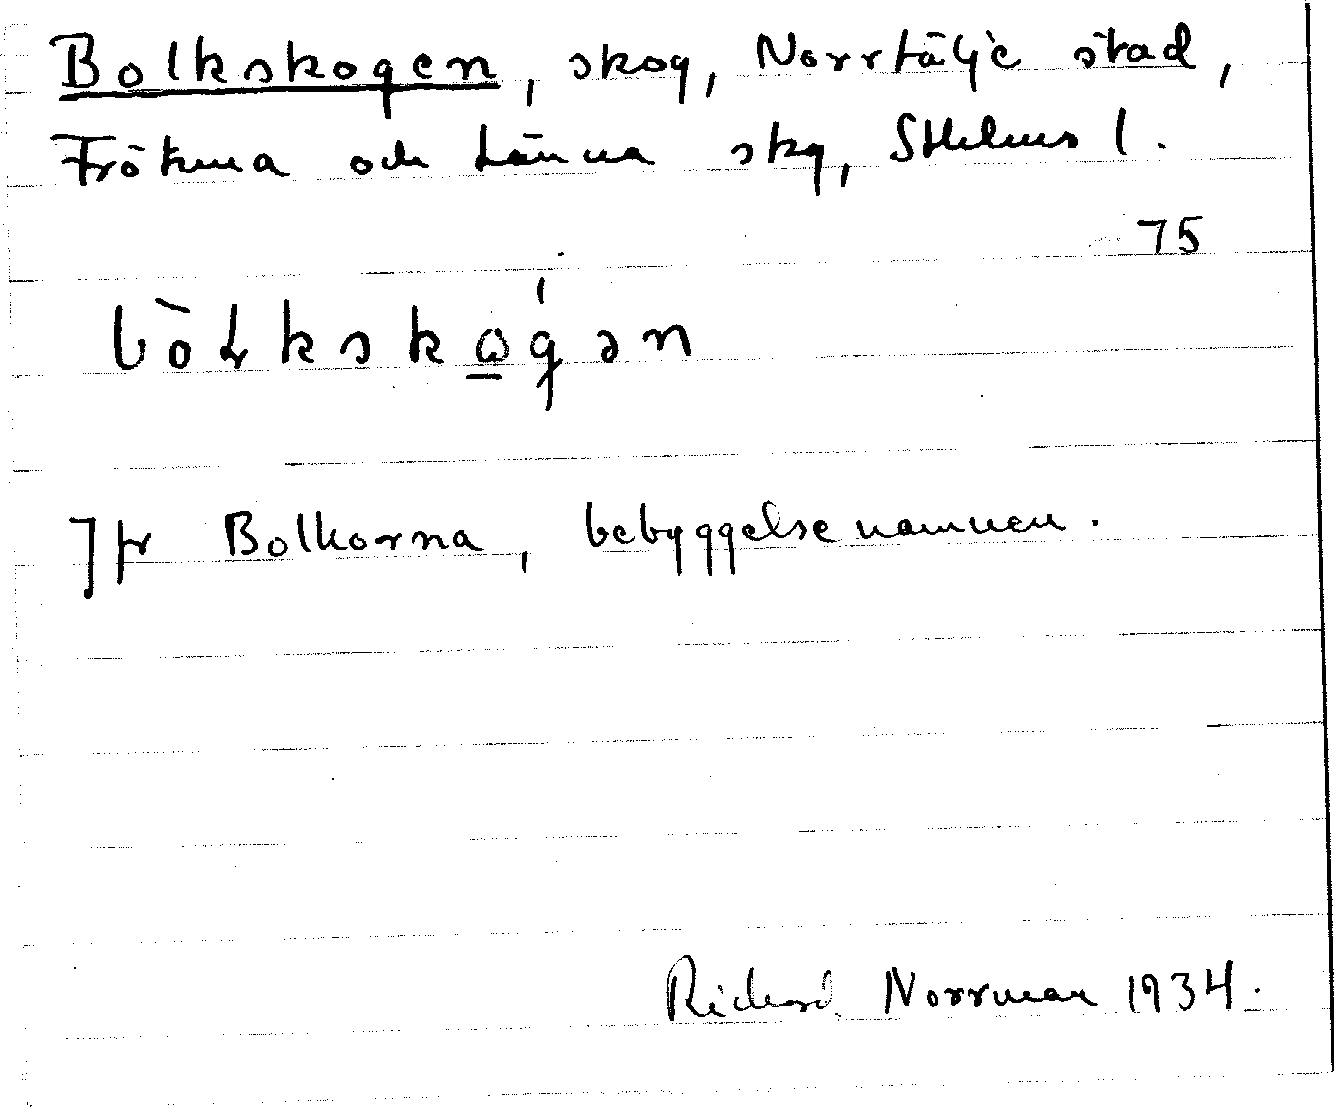 Bolkskogen, skog, Norrtälje stad,
Frötuna och Länna skg, Sthlms l.
75
bòłkskω̲gən
Jfr Bolkorna, bebyggelsenamnen.
Richard Norrman 1934.